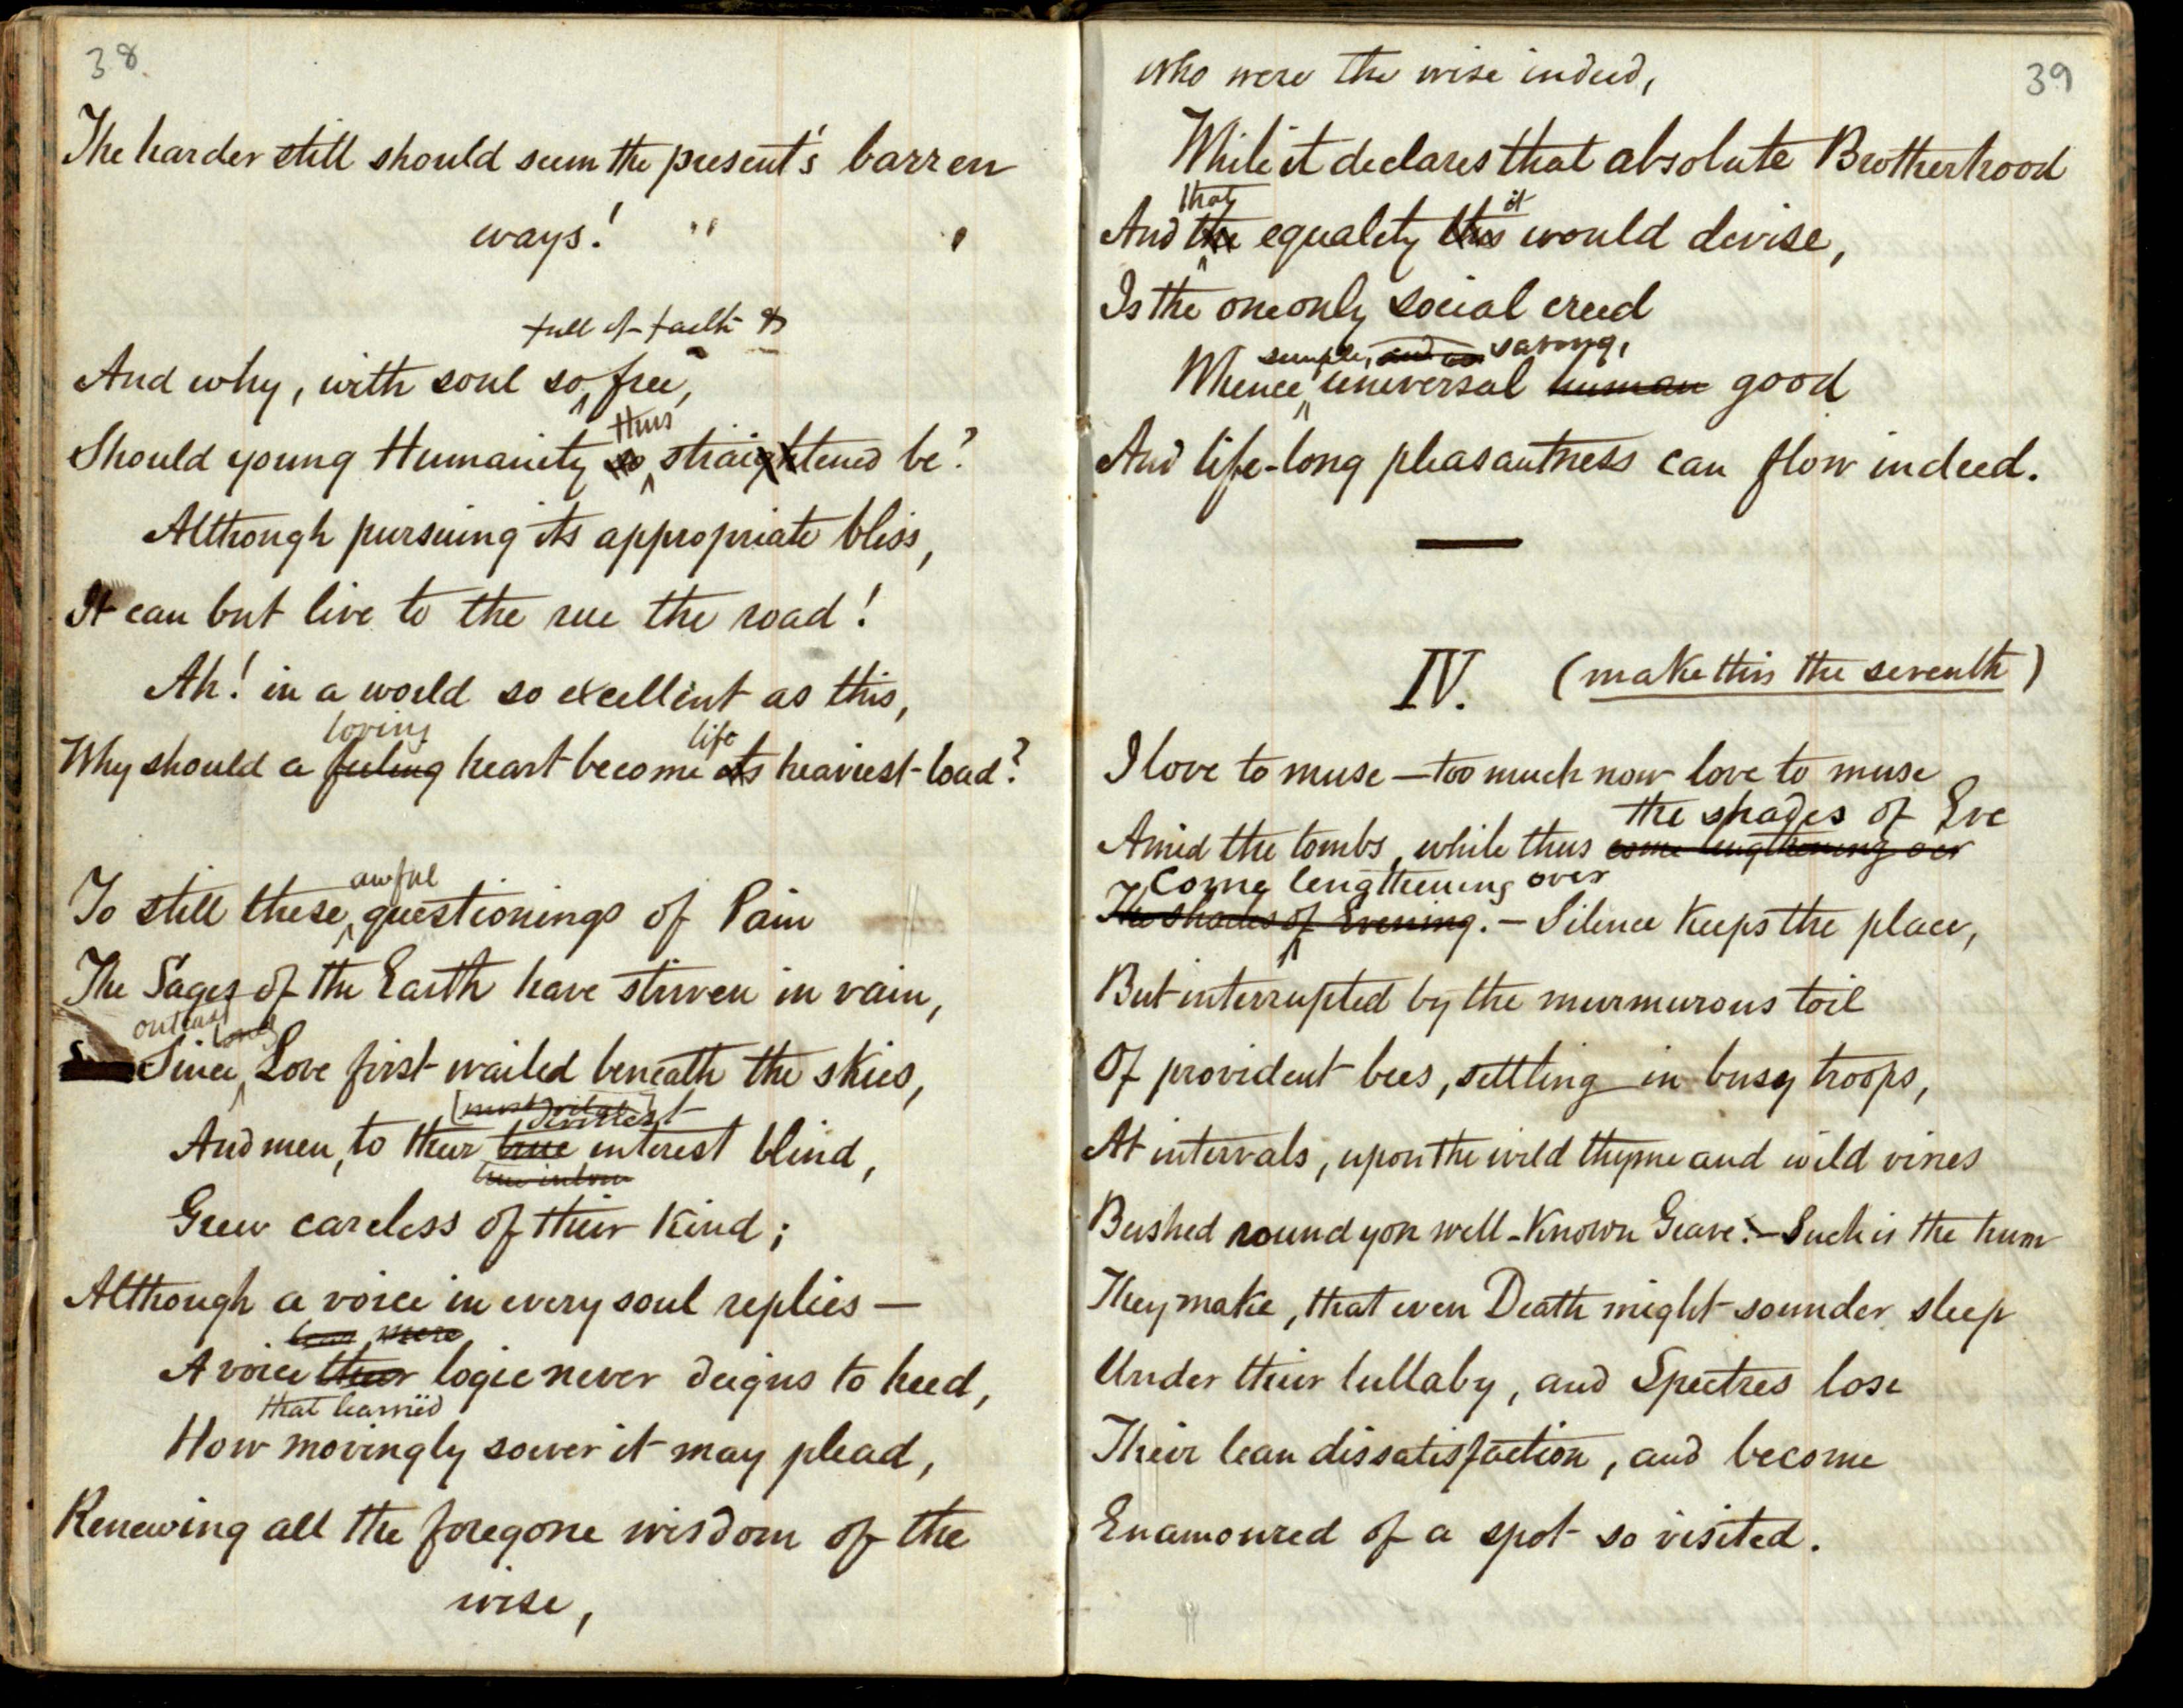 38.
The harder still should seem the present's barren
ways! "
full of faith &
And why, with soul so free,
thus
Should young Humanity so straightened be?
Although pursuing its appropriate bliss,
It can but live to the rue the road!
Ah! in a world so excellent as this,
loving life
Why should a feeling heart become its heaviest load?
awful
To still these questionings of Pain
The Sages of the Earth have striven in vain,
outcast
Since Love first wailed beneath the skies,
most vital
divinest
And men, to their true interest blind,
Grew careless of their Kind;
Although a voice in every soul replies —
mere
A voice their logic never deigns to heed,
that learnëd
How movingly soever it may plead,
Renewing all the foregone wisdom of the
wise,
39
Who were the wise indeed,
While it declares that absolute Brotherhood
that it
And the equality this would devise,
Is the one only social creed
simple, saving,
Whence universal human good
And life-long pleasantness can flow indeed.
IV. (make this the seventh)
I love to muse — too much now love to muse
the shades of Eve
Amid the tombs, while thus come lengthening oer
Come lengthening over
The shades of Evening. — Silence Keeps the place,
But interrupted by the murmurous toil
Of provident bees, settling in busy troops,
At intervals, upon the wild thyme and wild vines
Bushed round yon well-Known Grave. — Such is the hum
They make, that even Death might sounder sleep
Under their lullaby, and Spectres lose
Their lean dissatisfaction, and become
Enamoured of a spot so visited.